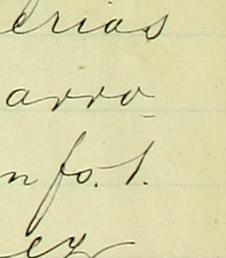 erias
arro
n fo. 1.
ey